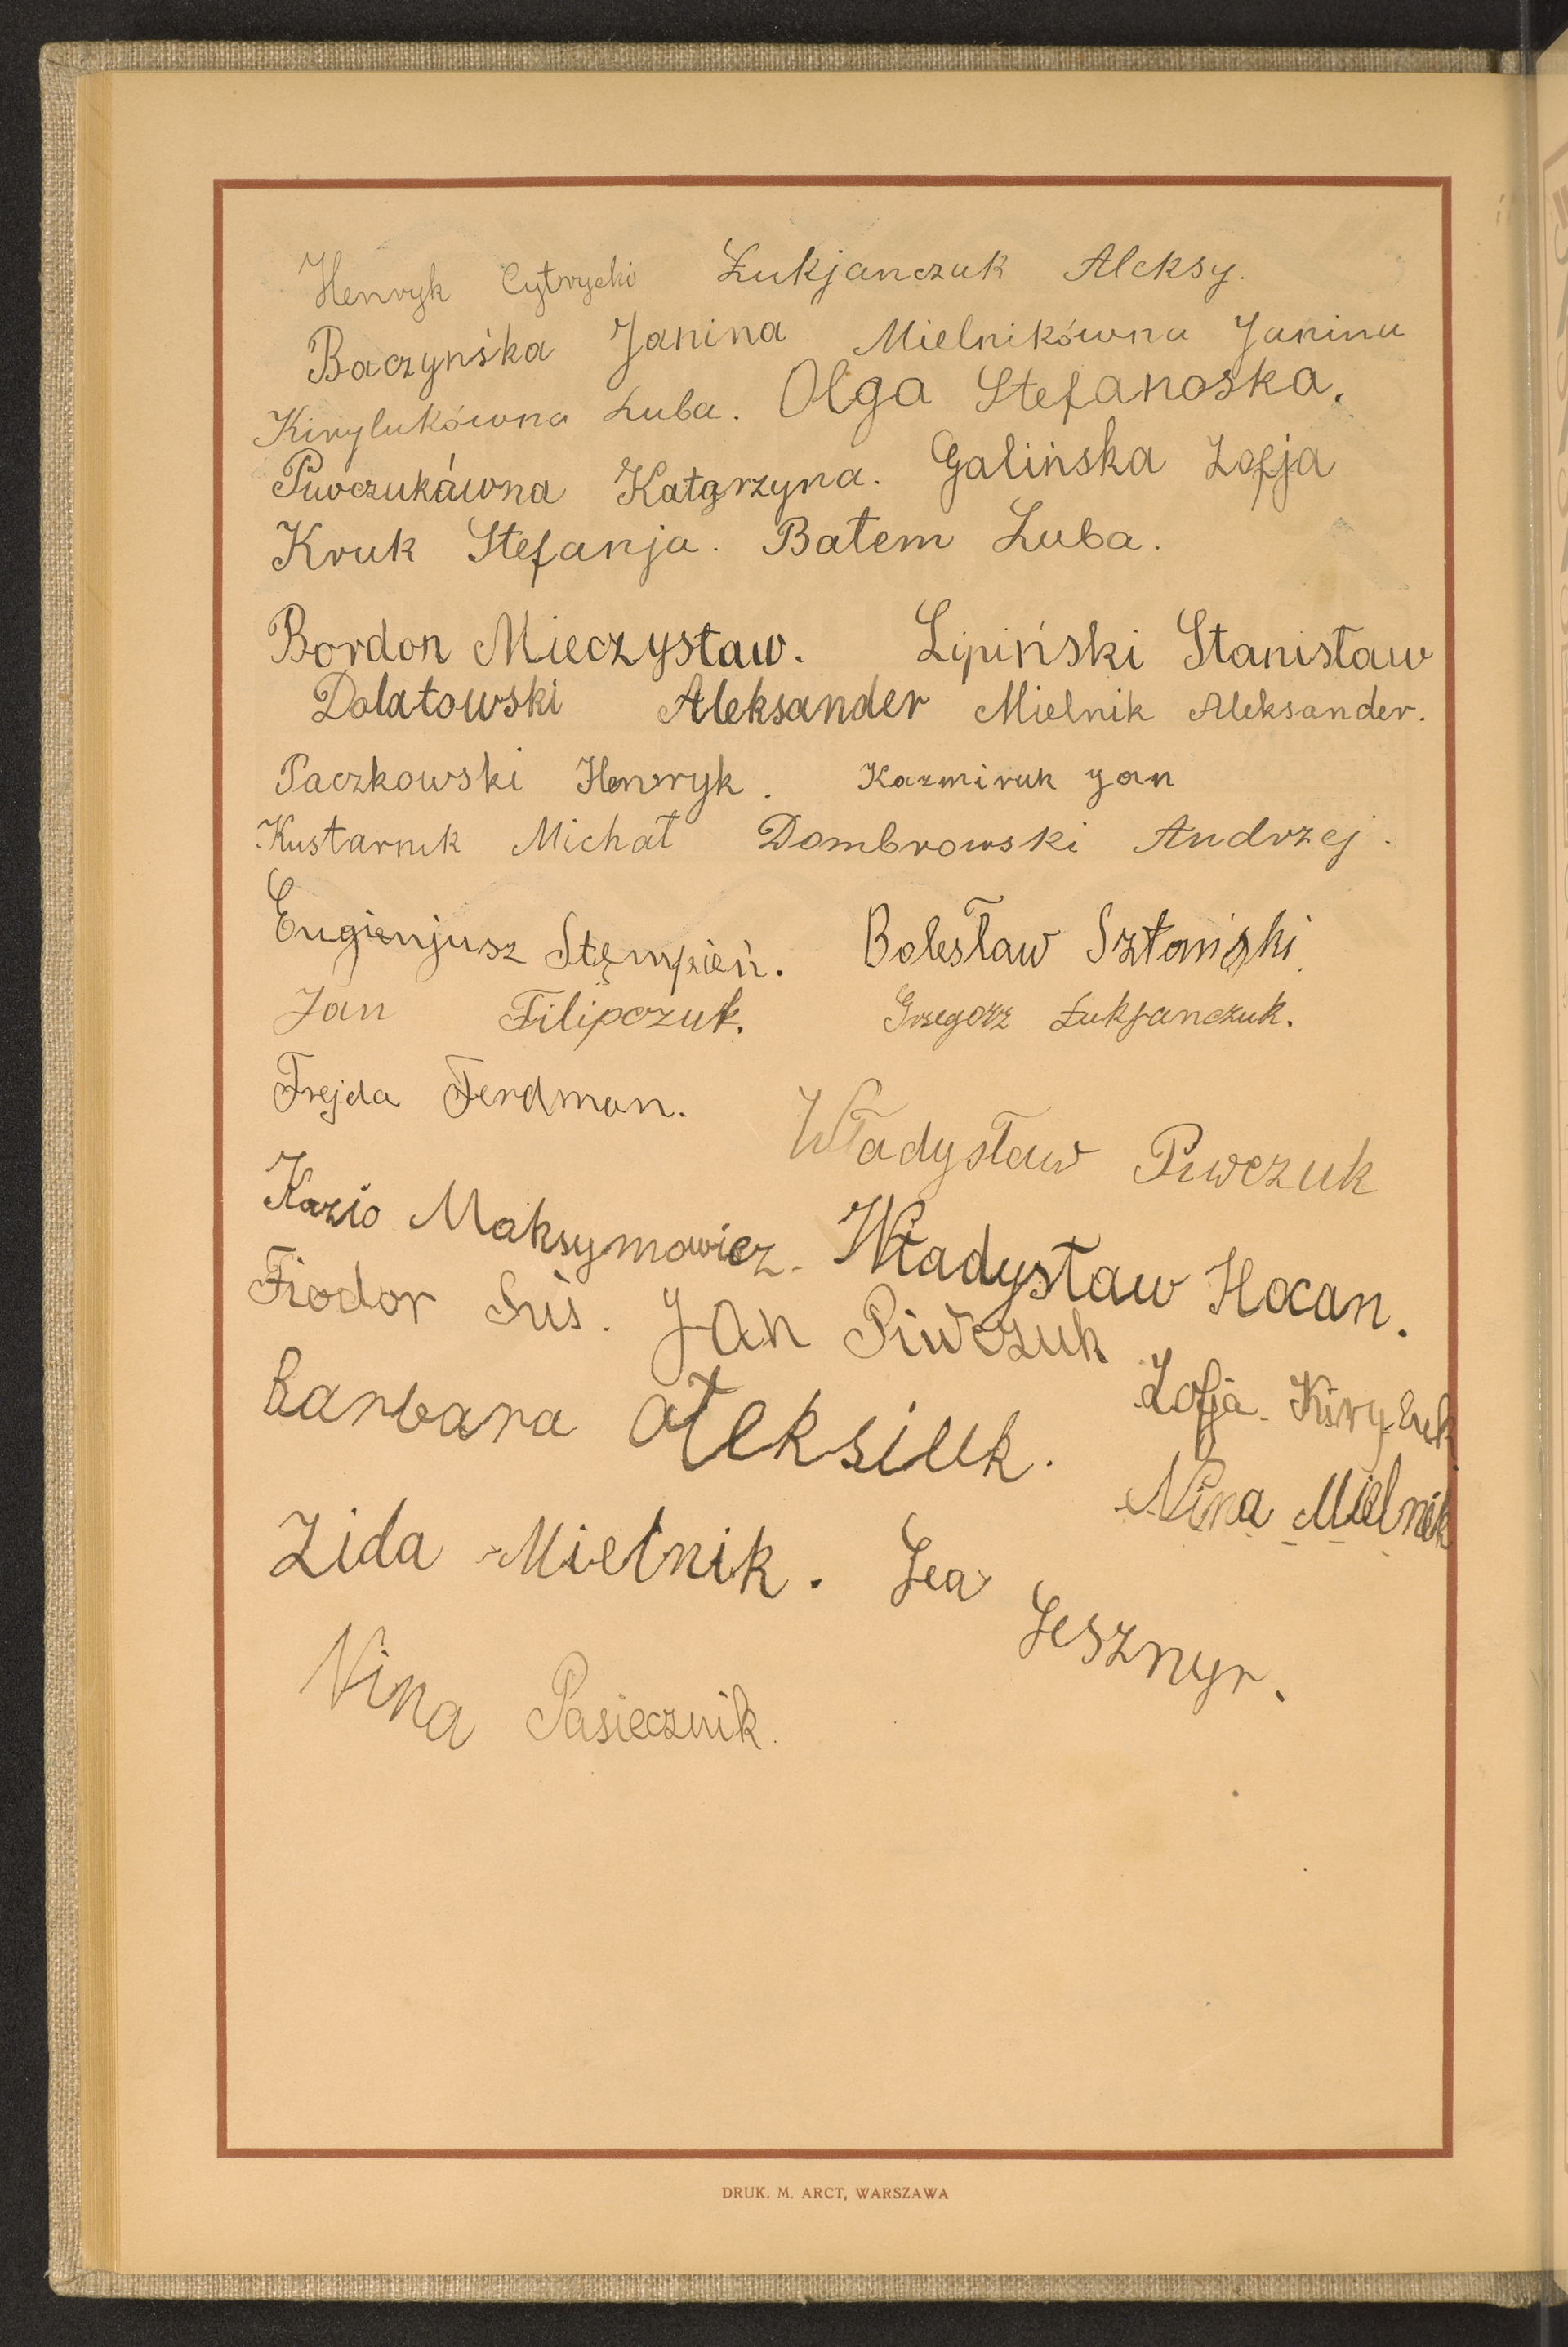 Henryk Cytrycki Łukjanczuk Aleksy.
Baczyńska Janina Mielnikówna Janina
Kirylukówna Luba. Olga Stefanoska.
Piwczukówna Katarzyna. Galińska Zofja
Kruk Stefanja. Bałem Luba.
Bordon Mieczysław. Lipiński Stanisław
Dolatowski Aleksander Mielnik Aleksander.
Paczkowski Henryk. Kazmiruk Jan
Kustarnik Michał Dombrowski Andrzej.
Eugienjusz Stęmpień. Bolesław
Jan Filipczuk. Grzegorz Łukjanczuk.
Frejda Ferdman.
Władysław Piwczuk
Kazio Maksymowicz. Władysław Hocan.
Fiodor Suś. Jan Piwczuk
Barbara Ołeksiuk. Zofja Kiryluk.
Nina Mielnik
Zida Mielnik. Lea Lesznyr.
Nina Pasiecznik.
DRUK. M. ARCT, WARSZAWA